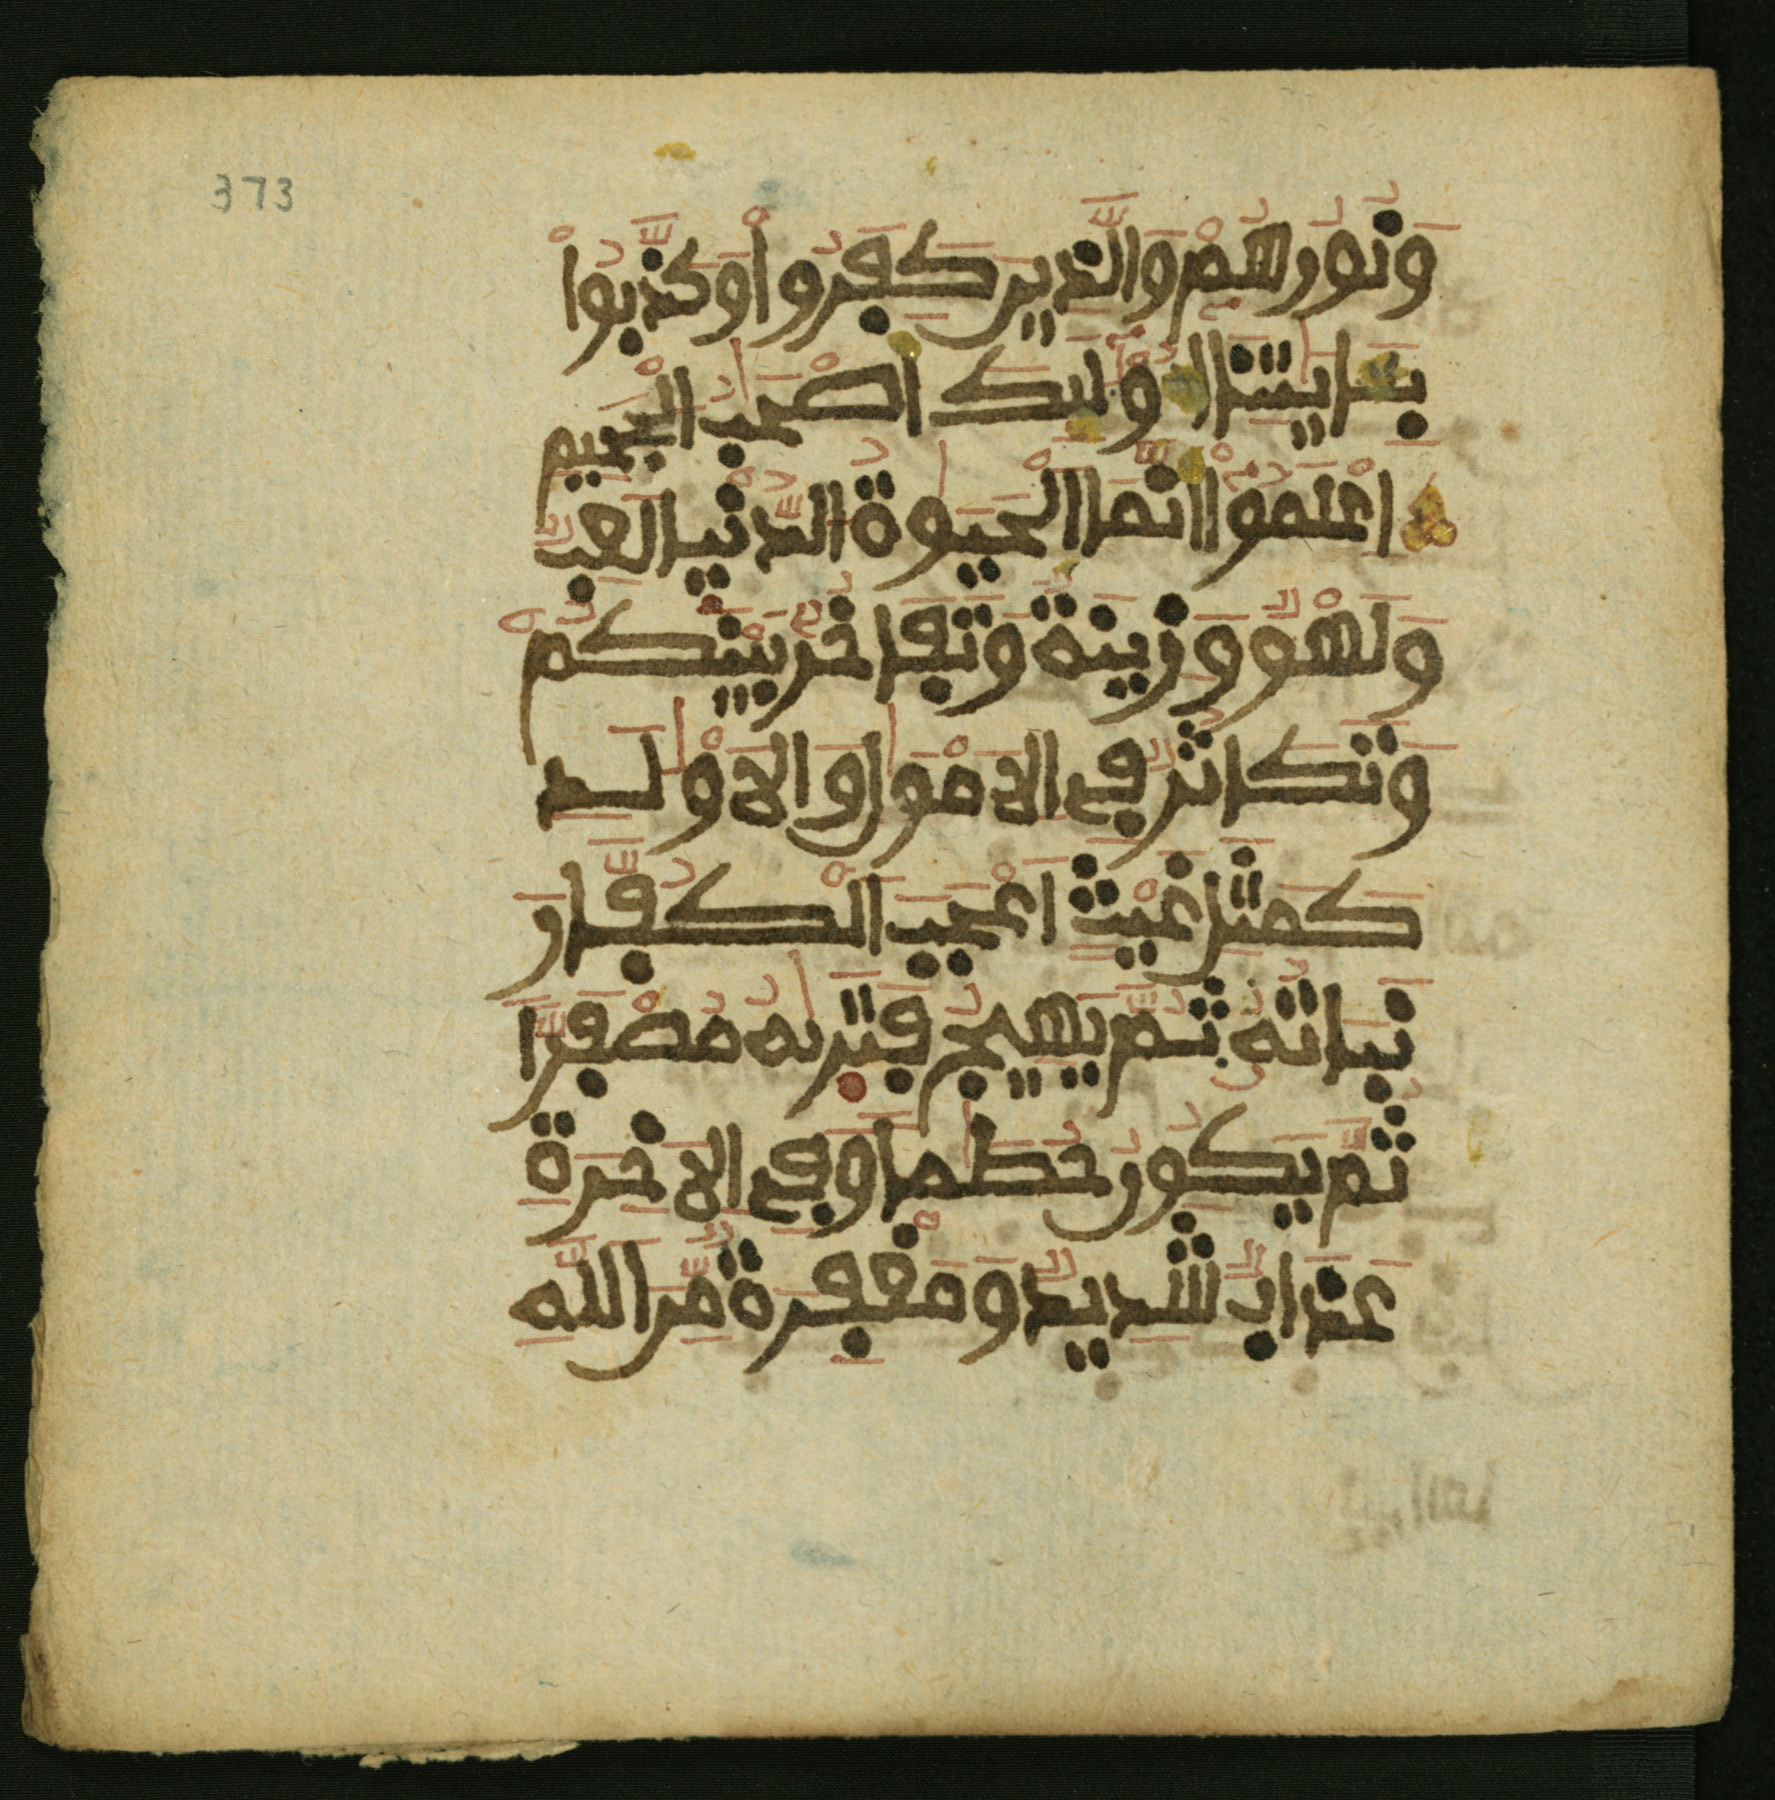 373
وَنُورُهُمْ وَالَّذِينَ كَفَرُوا۟ وَكَذَّبُوا۟
بِـَٔايَٰتِنَا أُو۟لَٰٓئِكَ أَصْحَٰبُ الْجَحِيمِ
اعْلَمُوا أَنَّمَا الْحَيَوٰةُ الدُّنْيَا لَعِبٌ
وَلَهْوٌ وَزِينَةٌ وَتَفَاخُرٌ بَيْنَكُمْ
وَتَكَاثُرٌ فِي الَامْوَٰلِ وَالَاوْلَٰدِ
كَمَثَلِ غَيْثٍ أَعْجَبَ الْكُفَّارَ
نَبَاتُهُ ثُمَّ يَهِيجُ فَتَرَىٰهُ مُصْفَرًّا
ثُمَّ يَكُونُ حُطَٰمًا وَفِي الَاخِرَةِ
عَذَابٌ شَدِيدٌ وَمَغْفِرَةٌ مِّنَ اللَّهِ